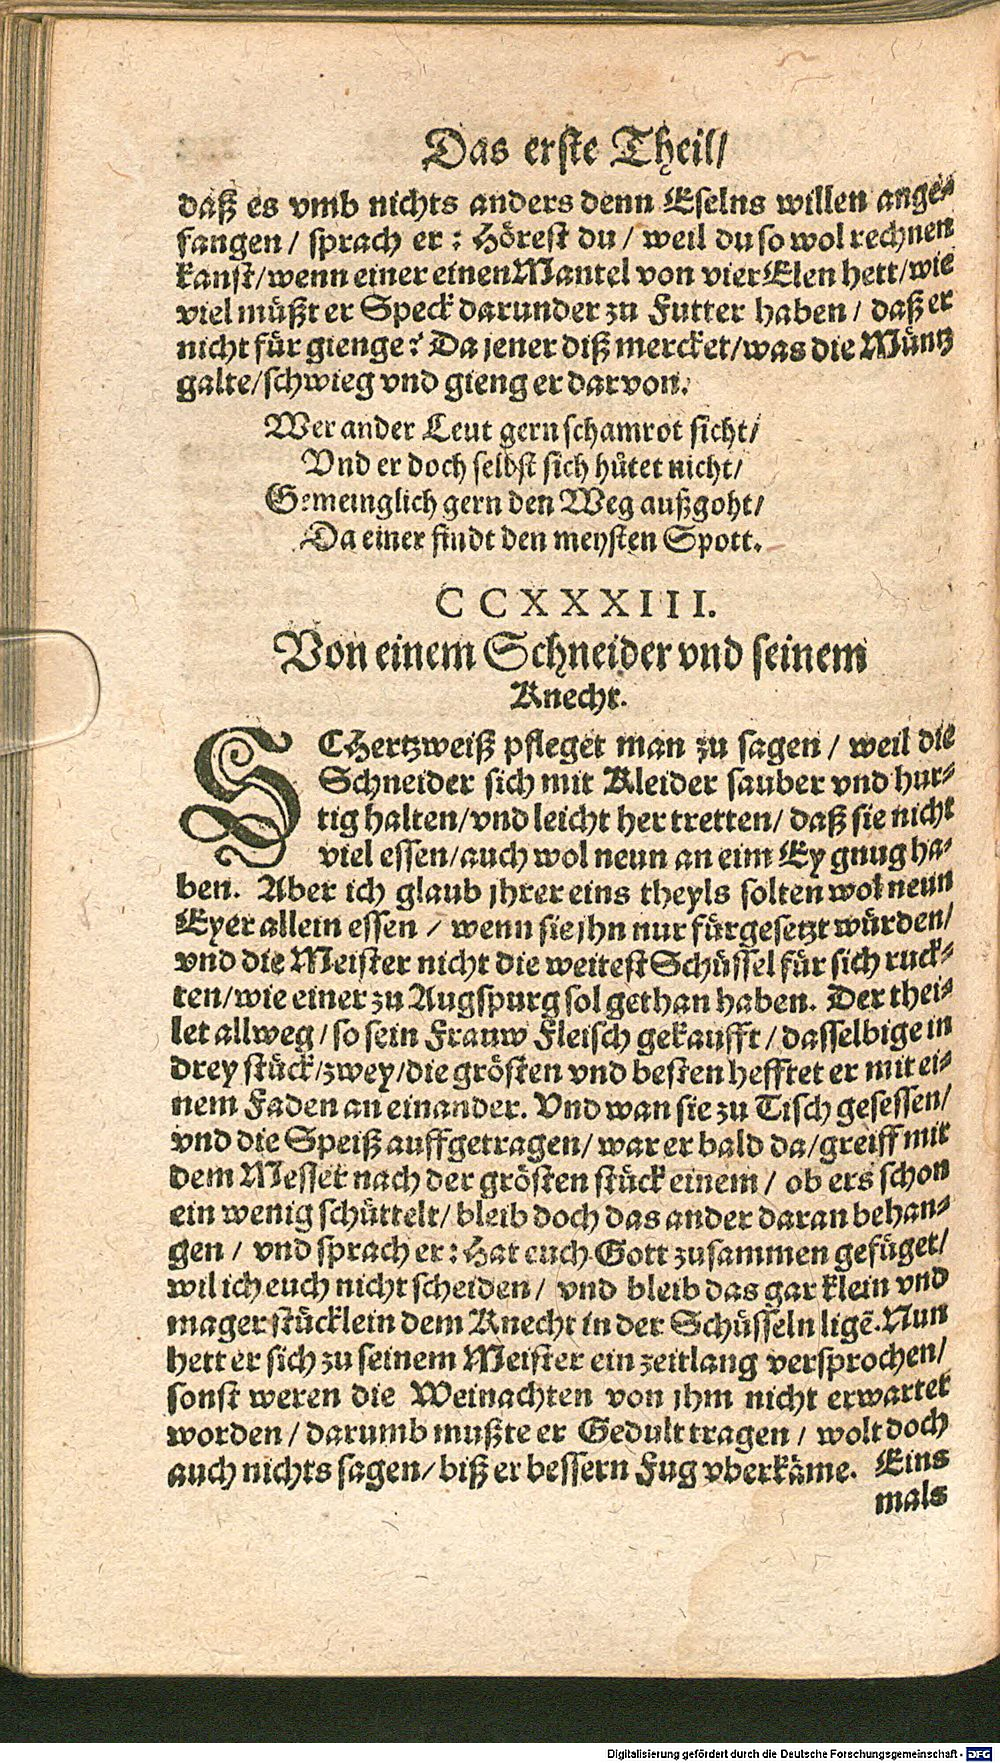 Das erste Theil/
daß es vmb nichts anders denn Eselns willen ange-
fangen / sprach er : Hörest du / weil du so wol rechnen
kanst/wenn einer einen Mantel von vier Elen hett/wie
viel müßt er Speck darunder zu Futter haben / daß er
nicht für gienge? Da jener diß mercket/was die Müntz
galte/schwieg vnd gieng er darvon.
Wer ander Leut gern schamrot sicht/
Vnd er doch selbst sich hütet nicht/
Gemeinglich gern den Weg außgoht/
Da einer findt den meysten Spott.
CCXXXIII.
Von einem Schneider vnd seinem
Knecht.
SCHertzweiß pfleget man zu sagen / weil die
Schneider sich mit Kleider sauber vnd hur-
tig halten/vnd leicht her tretten/ daß sie nicht
viel essen/auch wol neun an eim Ey gnug ha-
ben. Aber ich glaub jhrer eins theyls solten wol neun
Eyer allein essen / wenn sie jhn nur fürgesetzt würden/
vnd die Meister nicht die weitest Schüssel für sich ruck-
ten/wie einer zu Augspurg sol gethan haben. Der thei-
let allweg/so sein Frauw Fleisch gekaufft/dasselbige in
drey stück/zwey/die grösten vnd besten hefftet er mit ei-
nem Faden an einander. Vnd wan sie zu Tisch gesessen/
vnd die Speiß auffgetragen/ war er bald da/greiff mit
dem Messer nach der grösten stück einem / ob ers schon
ein wenig schüttelt/bleib doch das ander daran behan-
gen / vnd sprach er : Hat euch Gott zusammen gefüget/
wil ich euch nicht scheiden / vnd bleib das gar klein vnd
mager stücklein dem Knecht in der Schüsseln ligẽ. Nun
hett er sich zu seinem Meister ein zeitlang versprochen/
sonst weren die Weinachten von jhm nicht erwartet
worden / darumb mußte er Gedult tragen / wolt doch
auch nichts sagen/biß er bessern Fug vberkäme. Eins
mals
Digitalisierung gefördert durch die Deutsche Forschungsgemeinschaft - DFG